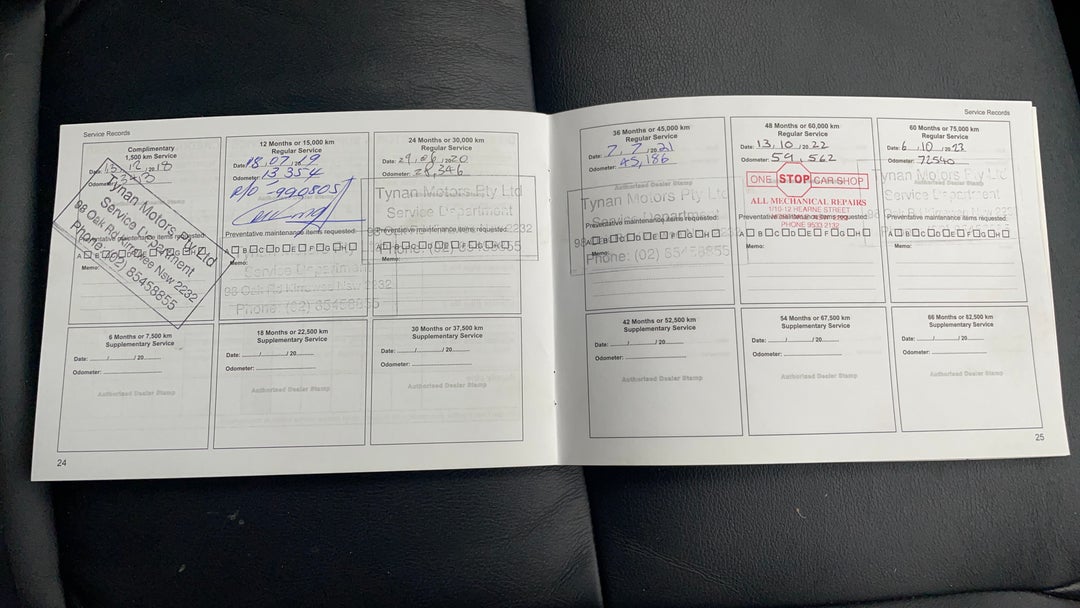 Service Records
Complimentary
1,500 km Service
Date: 15.12.18
Odometer:
Tynan Motors Pty Ltd
Service Department
98 Oak Rd Kirrawee Nsw 2232
Phone: (02) 85458855
Preventative maintenance items requested:
A B C D E F G H
Memo:
12 Months or 15,000 km
Regular Service
Date: 18.07.19
Odometer: 13354
R/O - 990805
Preventative maintenance items requested:
A B C D E F G H
Memo:
Service Department
98 Oak Rd Kirrawee Nsw 2232
Phone: (02) 85458855
24 Months or 30,000 km
Regular Service
Date: 29.06.2020
Odometer: 28,346
Tynan Motors Pty Ltd
Service Department
Preventative maintenance items requested:
A B C D E F G H
Phone: (02)
Memo:
6 Months or 7,500 km
Supplementary Service
Date: ....../....../ 20......
Odometer:
Authorised Dealer Stamp
18 Months or 22,500 km
Supplementary Service
Date: ....../....../ 20......
Odometer:
Authorised Dealer Stamp
30 Months or 37,500 km
Supplementary Service
Date: ....../....../ 20......
Odometer:
Authorised Dealer Stamp
24
Service Records
36 Months or 45,000 km
Regular Service
Date: 7.7.2021
Odometer: 45,186
Authorised Dealer Stamp
Tynan Motors Pty Ltd
Service Department
Preventative maintenance items requested:
A B C D E F G H
Phone: (02) 85458855
Memo:
48 Months or 60,000 km
Regular Service
Date: 13.10.2022
Odometer: 59,562
ONE STOP CAR SHOP
ALL MECHANICAL REPAIRS
1/10-12 HEARNE STREET
PHONE 9533 2132
Preventative maintenance items requested:
A B C D E F G H
Memo:
60 Months or 75,000 km
Regular Service
Date: 6.10.2023
Odometer: 72540
Tynan Motors Pty Ltd
Preventative maintenance items requested:
A B C D E F G H
Memo:
42 Months or 52,500 km
Supplementary Service
Date: ....../....../ 20......
Odometer:
Authorised Dealer Stamp
54 Months or 67,500 km
Supplementary Service
Date: ....../....../ 20......
Odometer:
Authorised Dealer Stamp
66 Months or 82,500 km
Supplementary Service
Date: ....../....../ 20......
Odometer:
Authorised Dealer Stamp
25